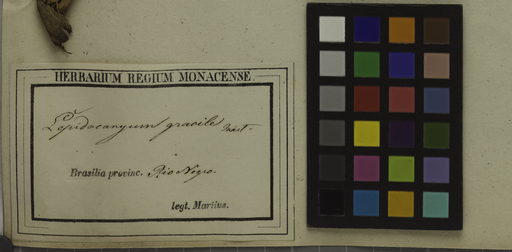 HERBARIUM REGIUM MONACENSE.
Lepidocaryum gracile Mart.
Brasilia provinc. Rio Negro.
legt. Martius.